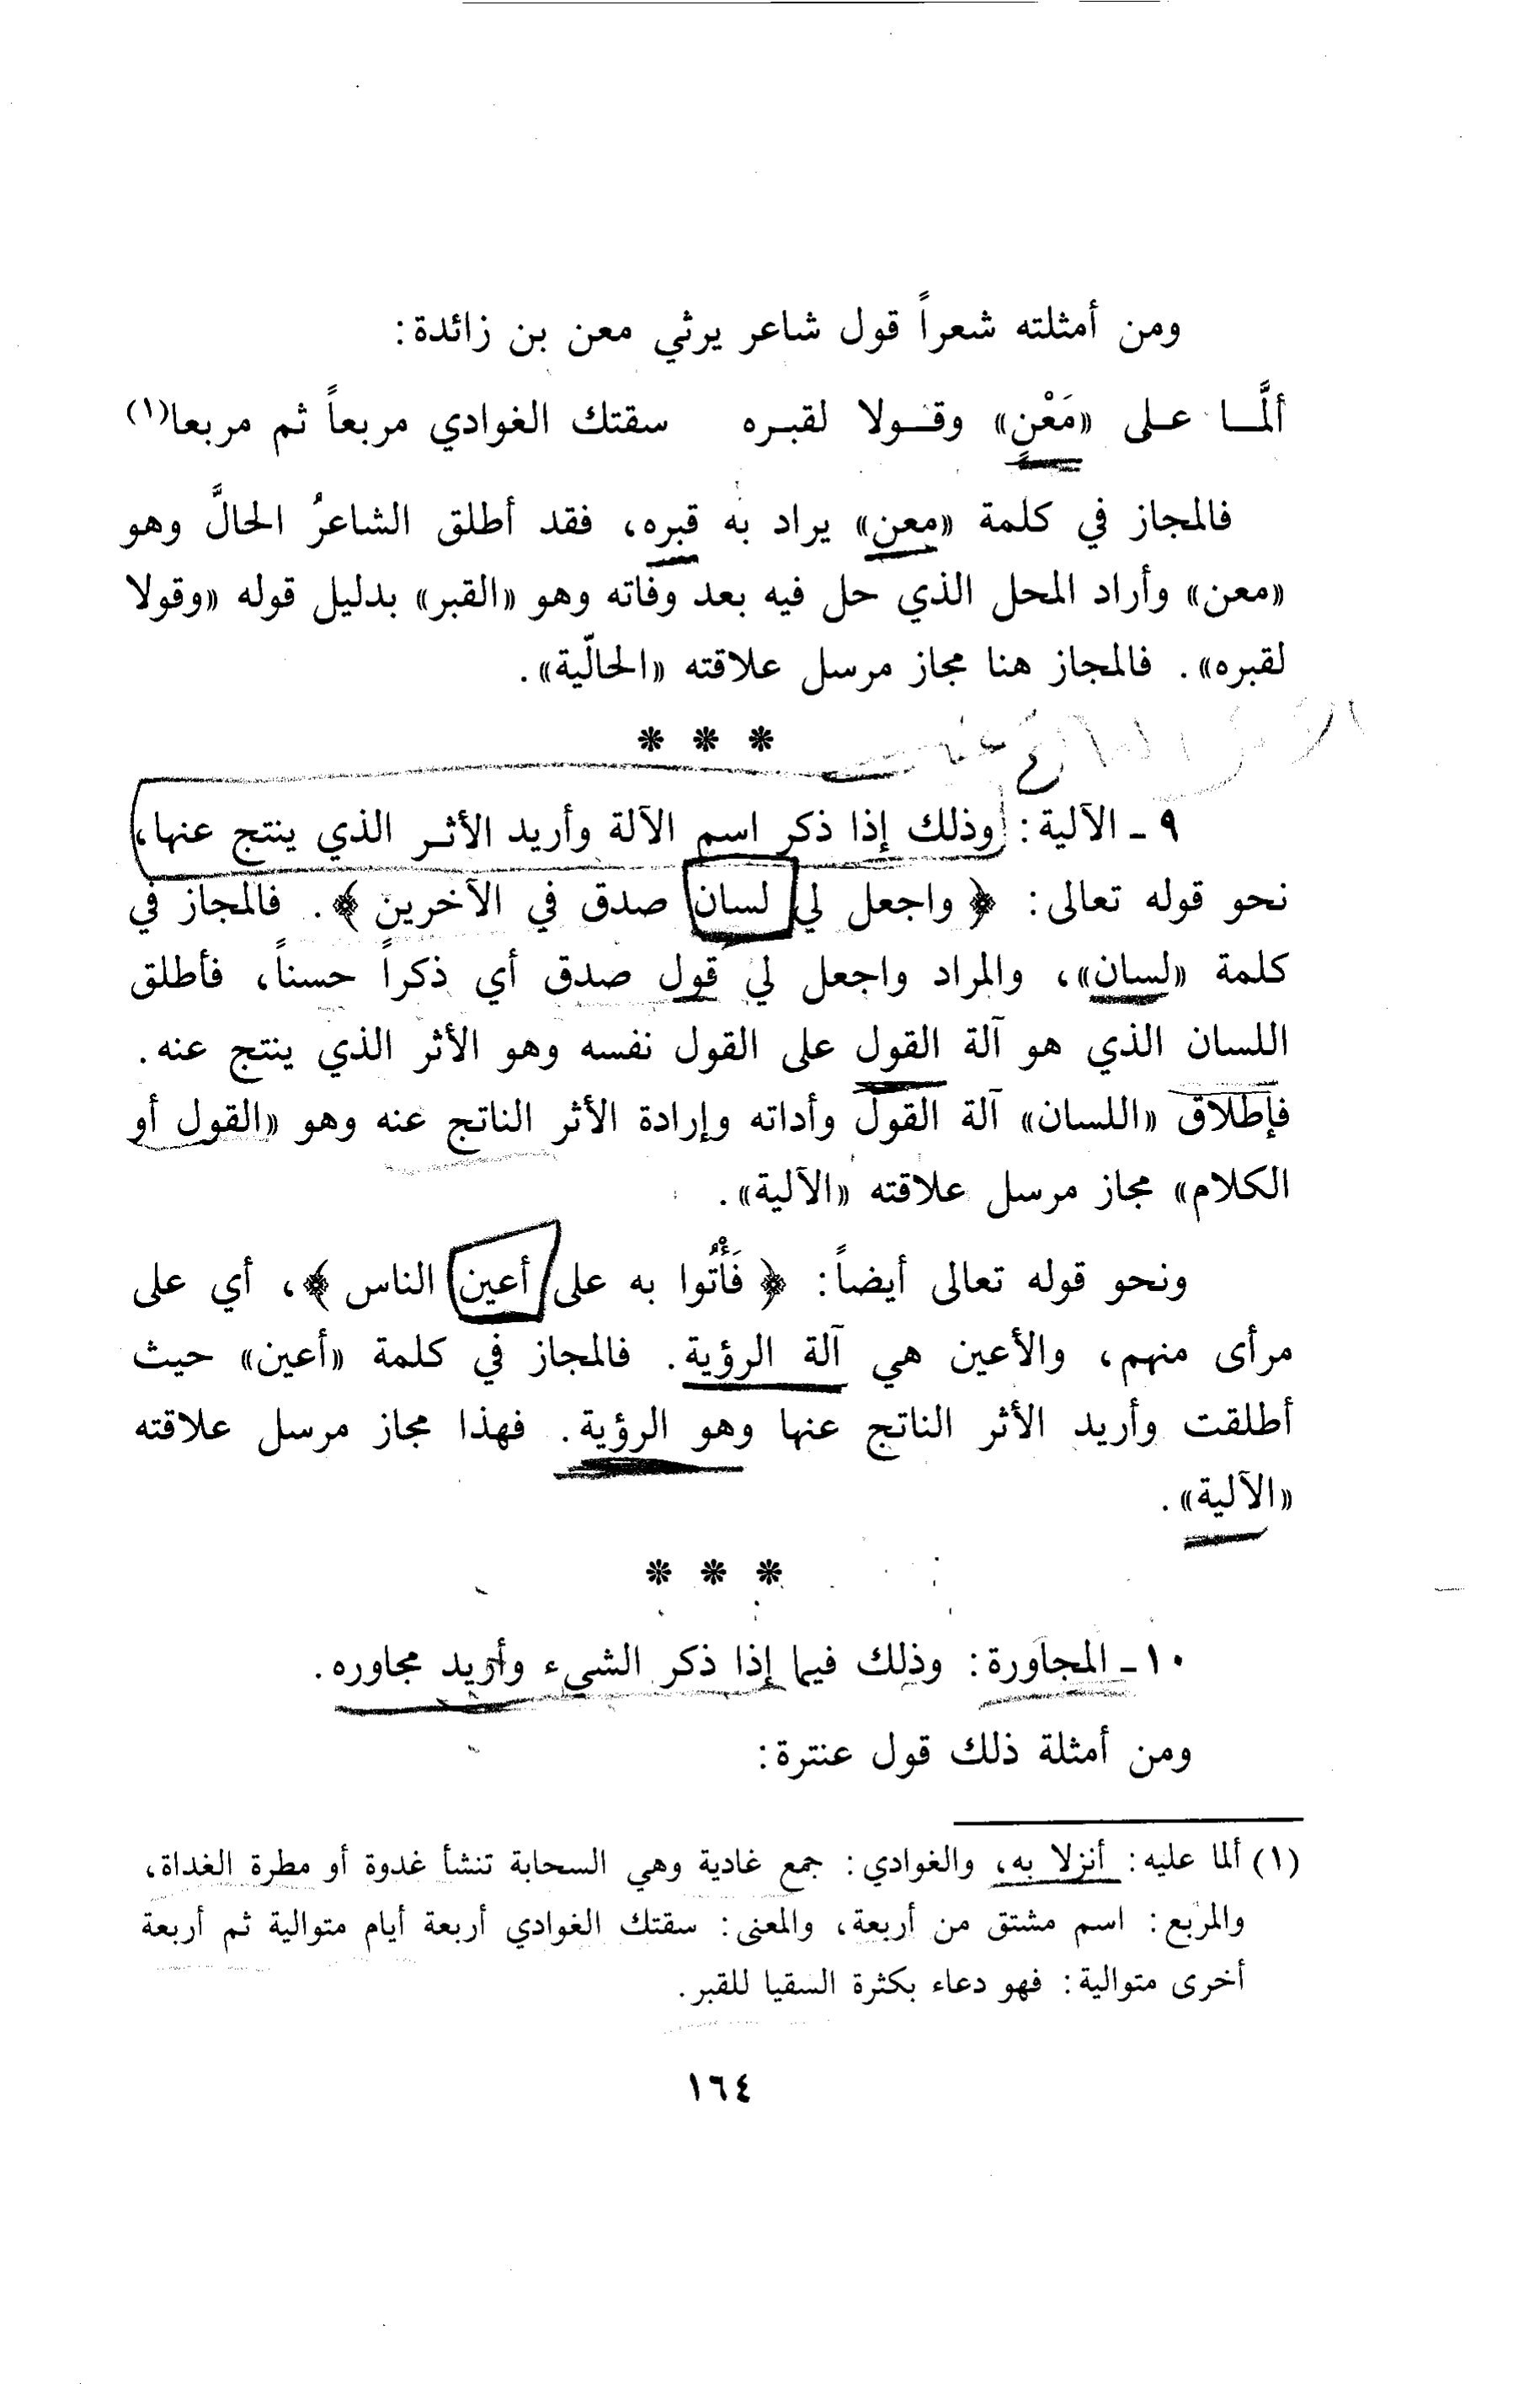 ومن أمثلته شعراً قول شاعر يرثي معن بن زائدة:
ألَّـــا علـى «مَعْنٍ» وقـــولا لقبـره سقتك الغوادي مربعاً ثم مربعا(١)
فالمجاز في كلمة «معن» يراد به قبره، فقد أطلق الشاعرُ الحالَّ وهو
«معن» وأراد المحل الذي حل فيه بعد وفاته وهو «القبر» بدليل قوله «وقولا
لقبره». فالمجاز هنا مجاز مرسل علاقته «الحالّية».
* * *
٩ ـ الآلية: وذلك إذا ذكر اسم الآلة وأريد الأثـر الذي ينتج عنها،
نحو قوله تعالى: ﴿ واجعل لي لسان صدق في الآخرين ﴾. فالمجاز في
كلمة «لسان»، والمراد واجعل لي قول صدق أي ذكراً حسناً، فأطلق
اللسان الذي هو آلة القول على القول نفسه وهو الأثر الذي ينتج عنه.
فإطلاق «اللسان» آلة القول وأداته وإرادة الأثر الناتج عنه وهو «القول أو
الكلام» مجاز مرسل علاقته «الآلية».
ونحو قوله تعالى أيضاً: ﴿ فَأْتُوا به على أعين الناس ﴾، أي على
مرأى منهم، والأعين هي آلة الرؤية. فالمجاز في كلمة «أعين» حيث
أطلقت وأريد الأثر الناتج عنها وهو الرؤية. فهذا مجاز مرسل علاقته
«الآلية».
* * *
١٠ ـ المجاورة: وذلك فيما إذا ذكر الشيء وأريد مجاوره.
ومن أمثلة ذلك قول عنترة:
(١) ألما عليه: أنزلا به، والغوادي: جمع غادية وهي السحابة تنشأ غدوة أو مطرة الغداة،
والمربع: اسم مشتق من أربعة، والمعنى: سقتك الغوادي أربعة أيام متوالية ثم أربعة
أخرى متوالية: فهو دعاء بكثرة السقيا للقبر.
١٦٤